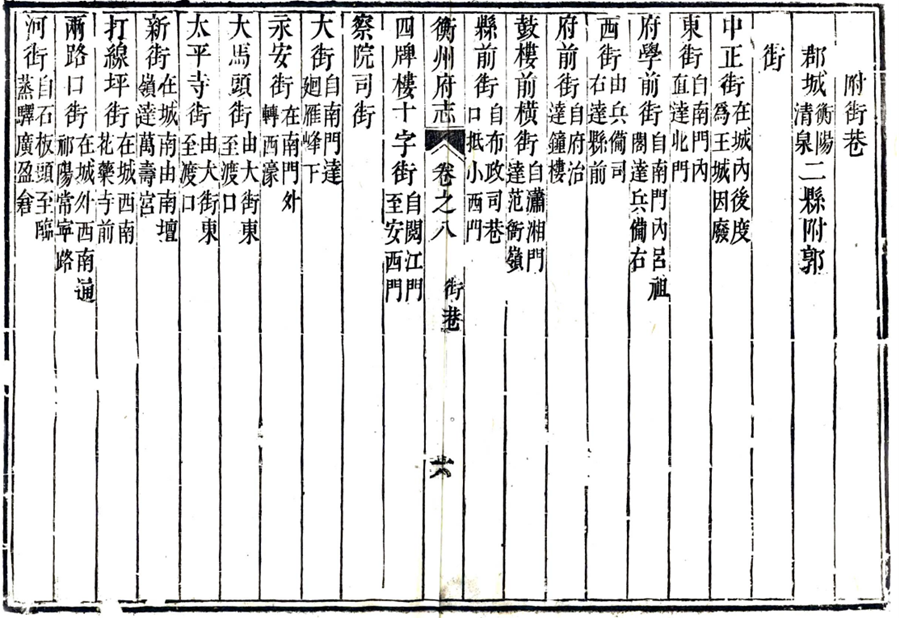 附街巷
郡城衡陽清泉二縣附郭
街
中正街在城內後度爲王城因廢
東街自南門內直達北門
府學前街自南門內呂祖閣達兵備右
西街由兵備司右達縣前
府前街自府治達鐘樓
鼓樓前橫街自瀟湘門達范衙嶺
縣前街自布政司巷口抵小西門
衡州府志 卷之八 街巷 六
四牌樓十字街自閱江門至安西門
察院司街
大街自南門達廻雁峰下
永安街在南門外轉西濠
大馬頭街由大街東至渡口
太平寺街由大街東至渡口
新街在城南由南壇嶺達萬壽宮
打線坪街在城西南花藥寺前
兩路口街在城外西南通祁陽常寧路
河街自石板頭至臨蒸驛廣盈倉